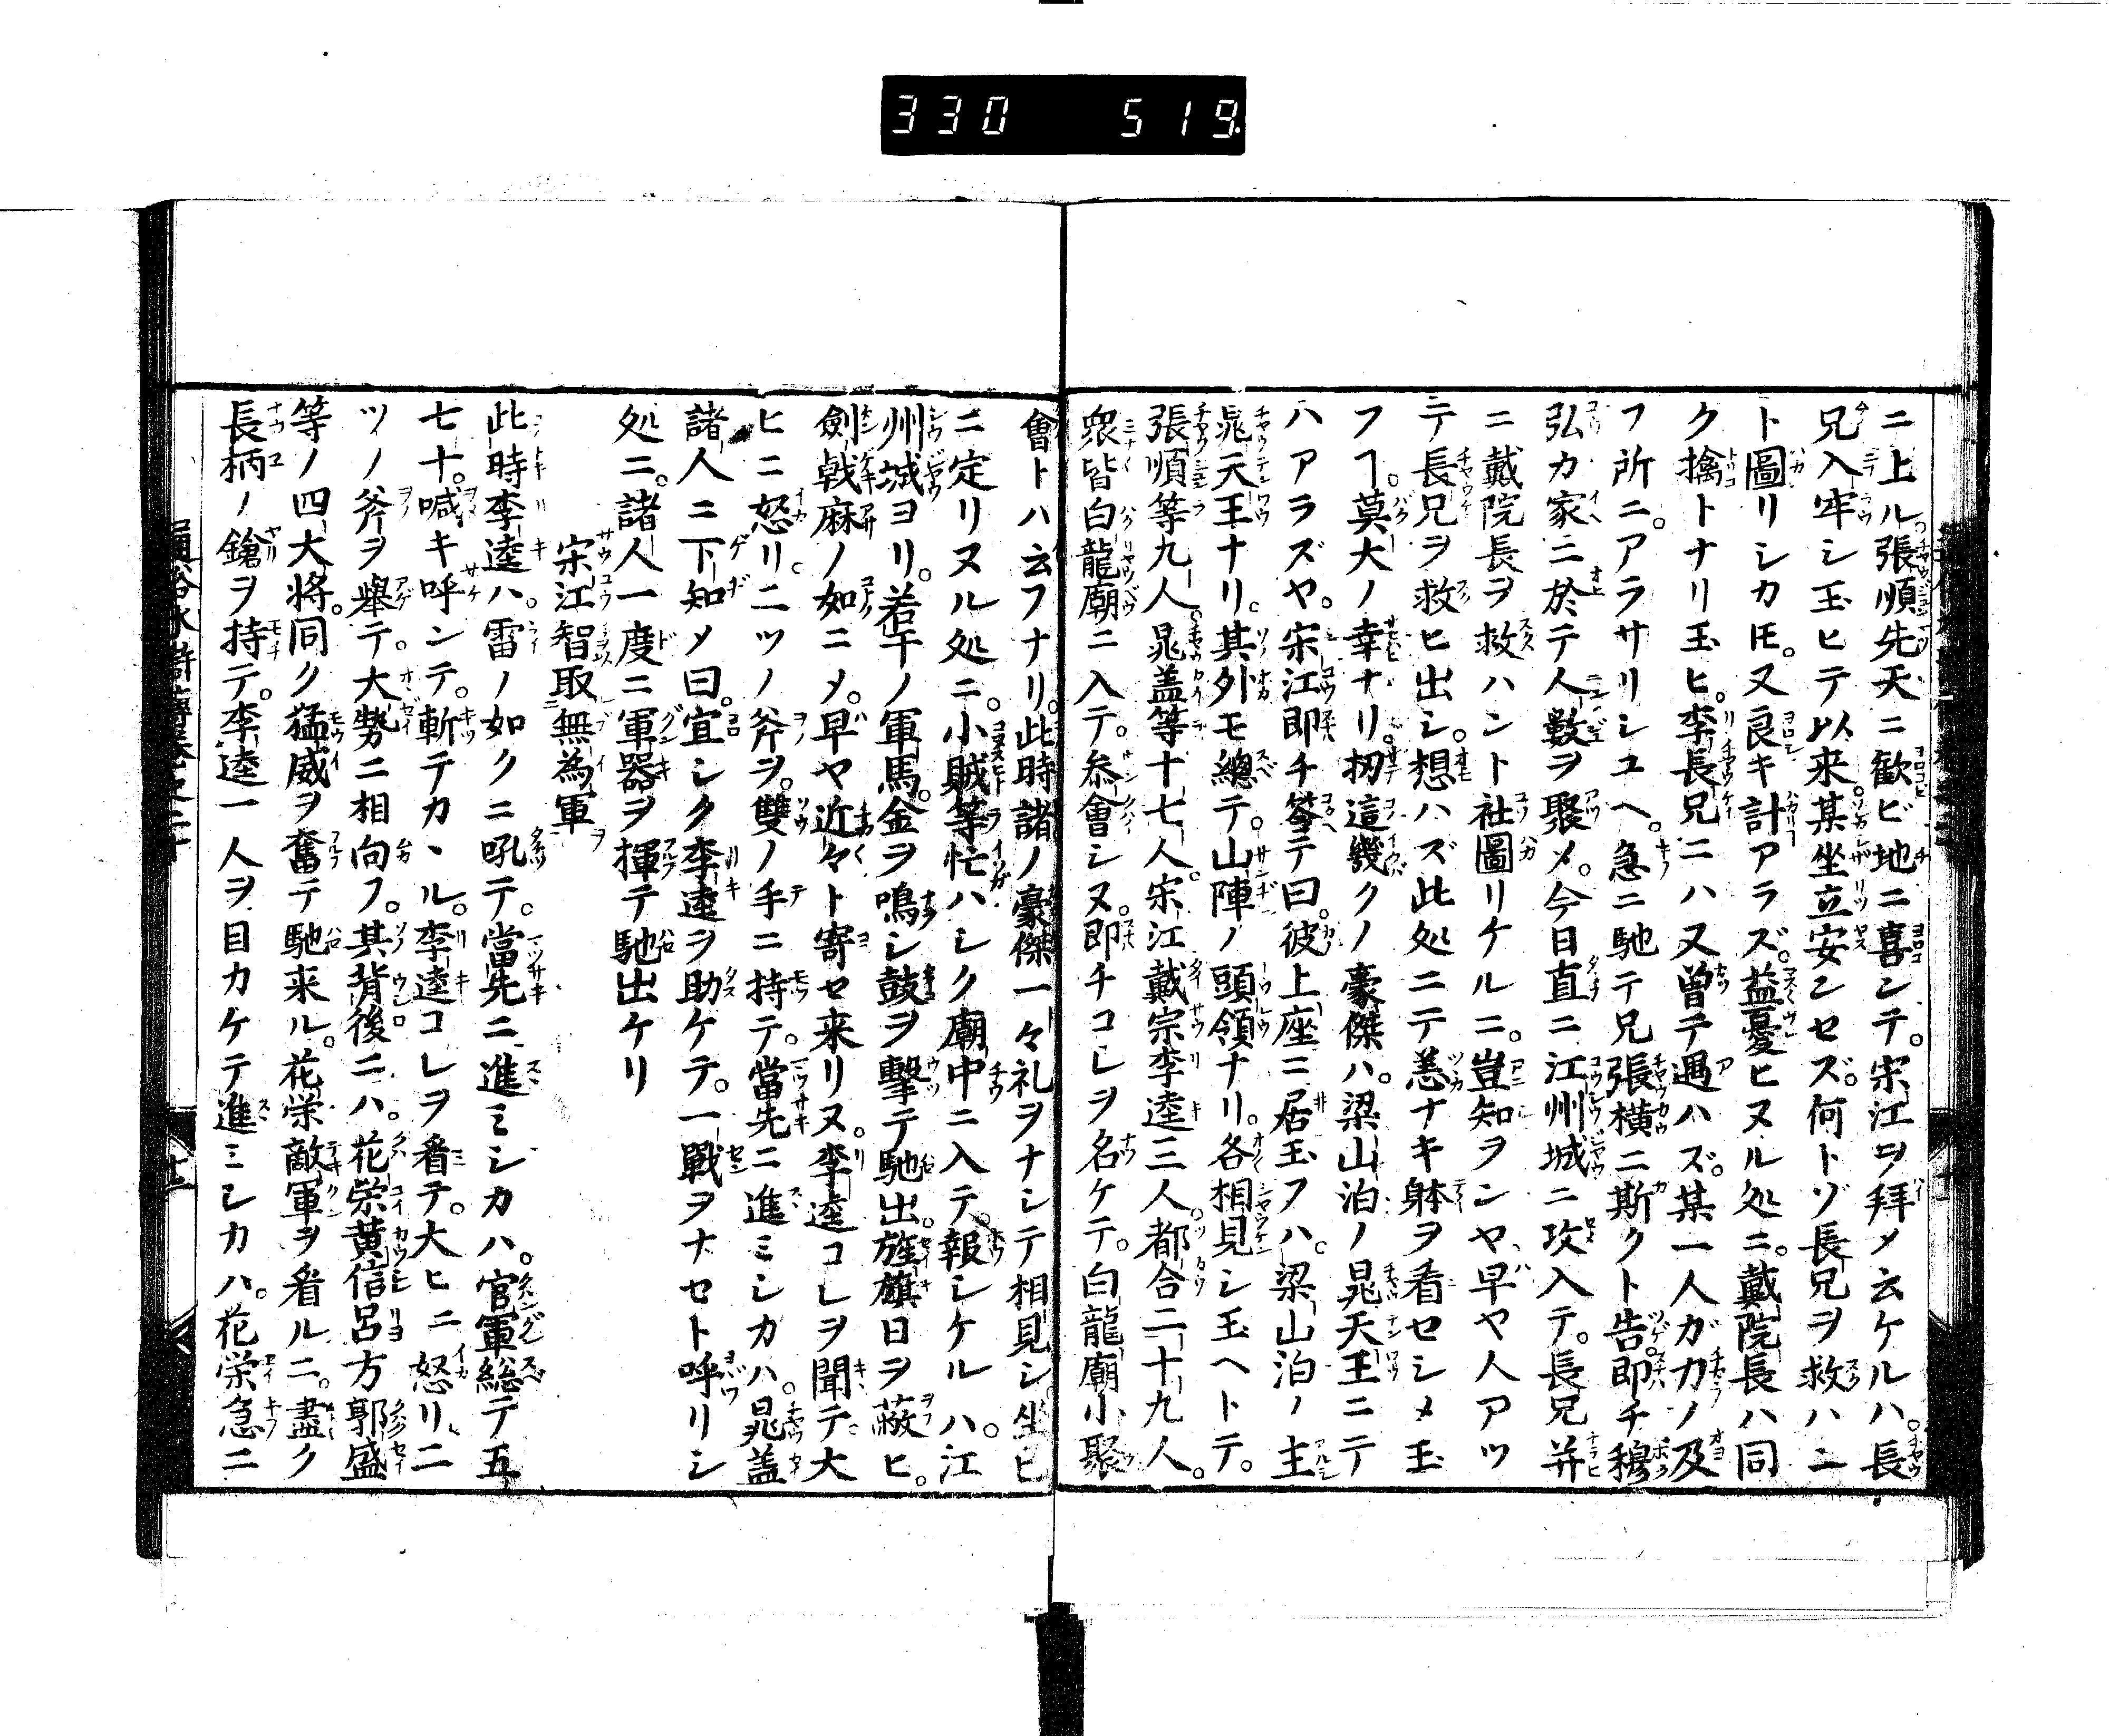 330 519.
ニ上ル張順先天ニ歓ビ地ニ喜ンテ。宋江ヲ拜メ云ケルハ。長
兄入牢シ玉ヒテ以来。某坐立安ンセズ。何トゾ長兄ヲ救ハニ
ト圖リシカ𪜈。又良キ計アラズ。益憂ヒヌル処ニ。戴院長ハ同
ク擒トナリ玉ヒ。李長兄ニハ又曽テ遇ハズ。某一人ガ力ノ及
フ所ニ。アラサリシユヘ。急ニ馳テ兄張横ニ斯クト告。即チ穆
弘カ家ニ於テ人数ヲ聚メ。今日直ニ江州城ニ攻入テ。長兄并
ニ戴院長ヲ救ハント社圖リケルニ。豈知ヲンヤ、早ヤ人アツ
テ長兄ヲ救ヒ出シ。想ハズ此処ニテ恙ナキ躰ヲ看セシメ玉
フヿ。莫大ノ幸ナリ。扨這幾クノ豪傑ハ。梁山泊ノ晁天王ニテ
ハアラズヤ。宋江即チ答テ曰。彼上座ニ居玉フハ。梁山泊ノ主
晁天王ナリ。其外モ總テ。山陣ノ頭領ナリ。各相見シ玉ヘトテ。
張順等九人。晁盖等十七人。宋江戴宗李逵三人都合二十九人。
衆皆白龍廟ニ入テ。叅會シヌ。即チコレヲ名ケテ。白龍廟小聚
會トハ云フナリ。此時諸ノ豪傑一々礼ヲナシテ相見シ。坐ヒ
ニ定リヌル処ニ。小賊等忙ハシク廟中ニ入テ。報シケルハ。江
州城ヨリ。若干ノ軍馬。金ヲ鳴シ鼓ヲ擊テ馳出。旌旗日ヲ蔽ヒ。
劍戟麻ノ如ニメ。早ヤ近々ト寄セ来リヌ。李逵コレヲ聞テ大
ヒニ怒リ。二ツノ斧ヲ。雙ノ手ニ持テ。當先ニ進ミシカハ。晁盖
諸人ニ下知メ曰。宜シク李逵ヲ助ケテ。一戰ヲナセト呼リシ
処ニ。諸人一度ニ軍器ヲ揮テ馳出ケリ
宋江智取無為軍
此時李逵ハ。雷ノ如クニ吼テ。當先ニ進ミシカハ。官軍総テ五
七十。喊キ呼ンテ。斬テカヽル。李逵コレヲ看テ。大ヒニ怒リ。二
ツノ斧ヲ擧テ。大勢ニ相向フ。其背後ニハ。花栄黄信呂方郭盛
等ノ四大将。同ク猛威ヲ奮テ馳来ル。花栄敵軍ヲ看ルニ。盡ク
長柄ノ鎗ヲ持テ。李逵一人ヲ目カケテ進ミシカハ。花栄急ニ